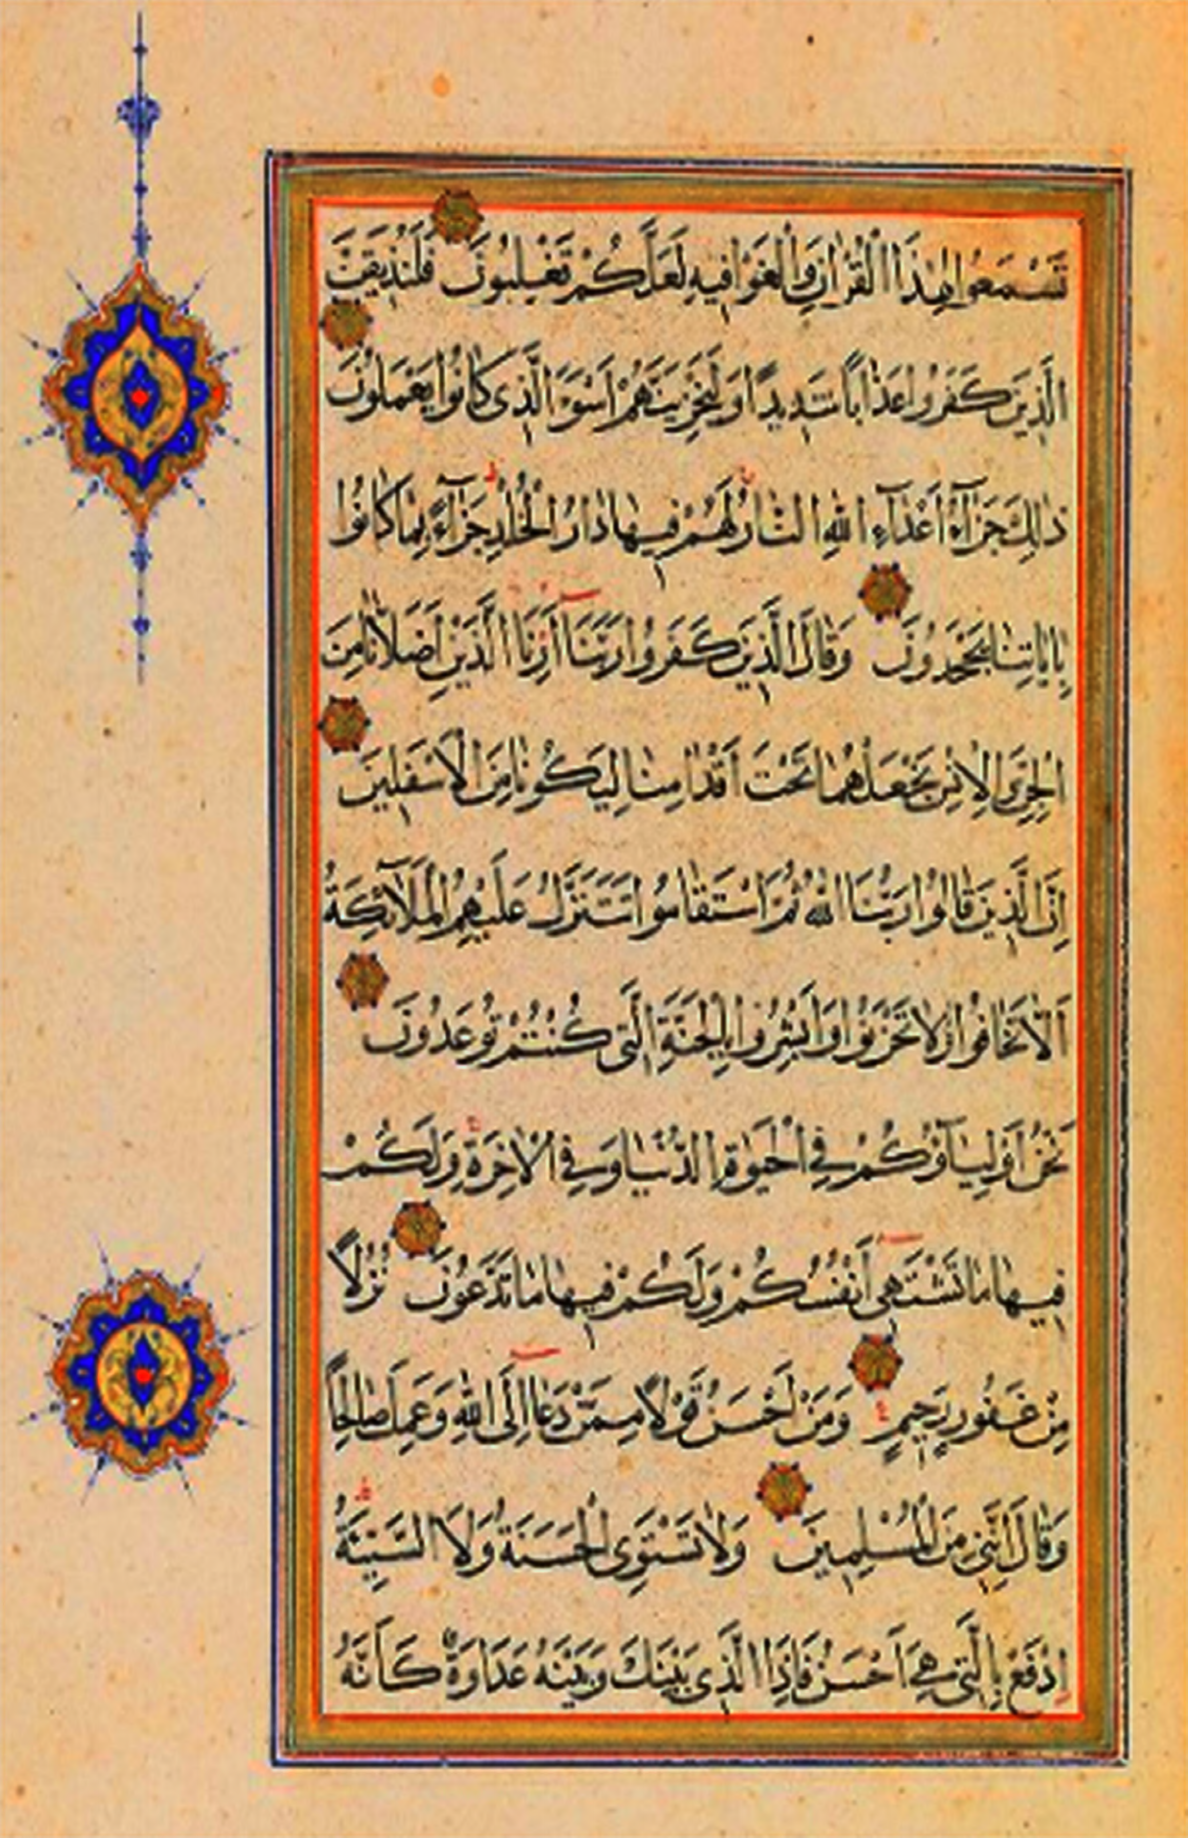 تَسْمَعُوا لِهٰذَا الْقُرْاٰنِ وَالْغَوْا فِيهِ لَعَلَّكُمْ تَغْلِبُونَ فَلَنُذِيقَنَّ
الَّذِينَ كَفَرُوا عَذَابًا شَدِيدًا وَلَنَجْزِيَنَّهُمْ اَسْوَءَ الَّذِى كَانُوا يَعْمَلُونَ
ذٰلِكَ جَزَآءُ اَعْدَآءِ اللّٰهِ النَّارُ لَهُمْ فِيهَا دَارُ الْخُلْدِ جَزَآءً بِمَا كَانُوا
بِاٰيَاتِنَا يَجْحَدُونَ وَقَالَ الَّذِينَ كَفَرُوا رَبَّنَآ اَرِنَا الَّذَيْنِ اَضَلَّانَا مِنَ
الْجِنِّ وَالْاِنْسِ نَجْعَلْهُمَا تَحْتَ اَقْدَامِنَا لِيَكُونَا مِنَ الْاَسْفَلِينَ
اِنَّ الَّذِينَ قَالُوا رَبُّنَا اللّٰهُ ثُمَّ اسْتَقَامُوا تَتَنَزَّلُ عَلَيْهِمُ الْمَلَآئِكَةُ
اَلَّا تَخَافُوا وَلَا تَحْزَنُوا وَاَبْشِرُوا بِالْجَنَّةِ الَّتِى كُنْتُمْ تُوعَدُونَ
نَحْنُ اَوْلِيَآؤُكُمْ فِى الْحَيٰوةِ الدُّنْيَا وَفِى الْاٰخِرَةِ وَلَكُمْ
فِيهَا مَا تَشْتَهِى اَنْفُسُكُمْ وَلَكُمْ فِيهَا مَا تَدَّعُونَ نُزُلًا
مِنْ غَفُورٍ رَحِيمٍ وَمَنْ اَحْسَنُ قَوْلًا مِمَّنْ دَعَا اِلَى اللّٰهِ وَعَمِلَ صَالِحًا
وَقَالَ اِنَّنِى مِنَ الْمُسْلِمِينَ وَلَا تَسْتَوِى الْحَسَنَةُ وَلَا السَّيِّئَةُ
اِدْفَعْ بِالَّتِى هِىَ اَحْسَنُ فَاِذَا الَّذِى بَيْنَكَ وَبَيْنَهُ عَدَاوَةٌ كَاَنَّهُ